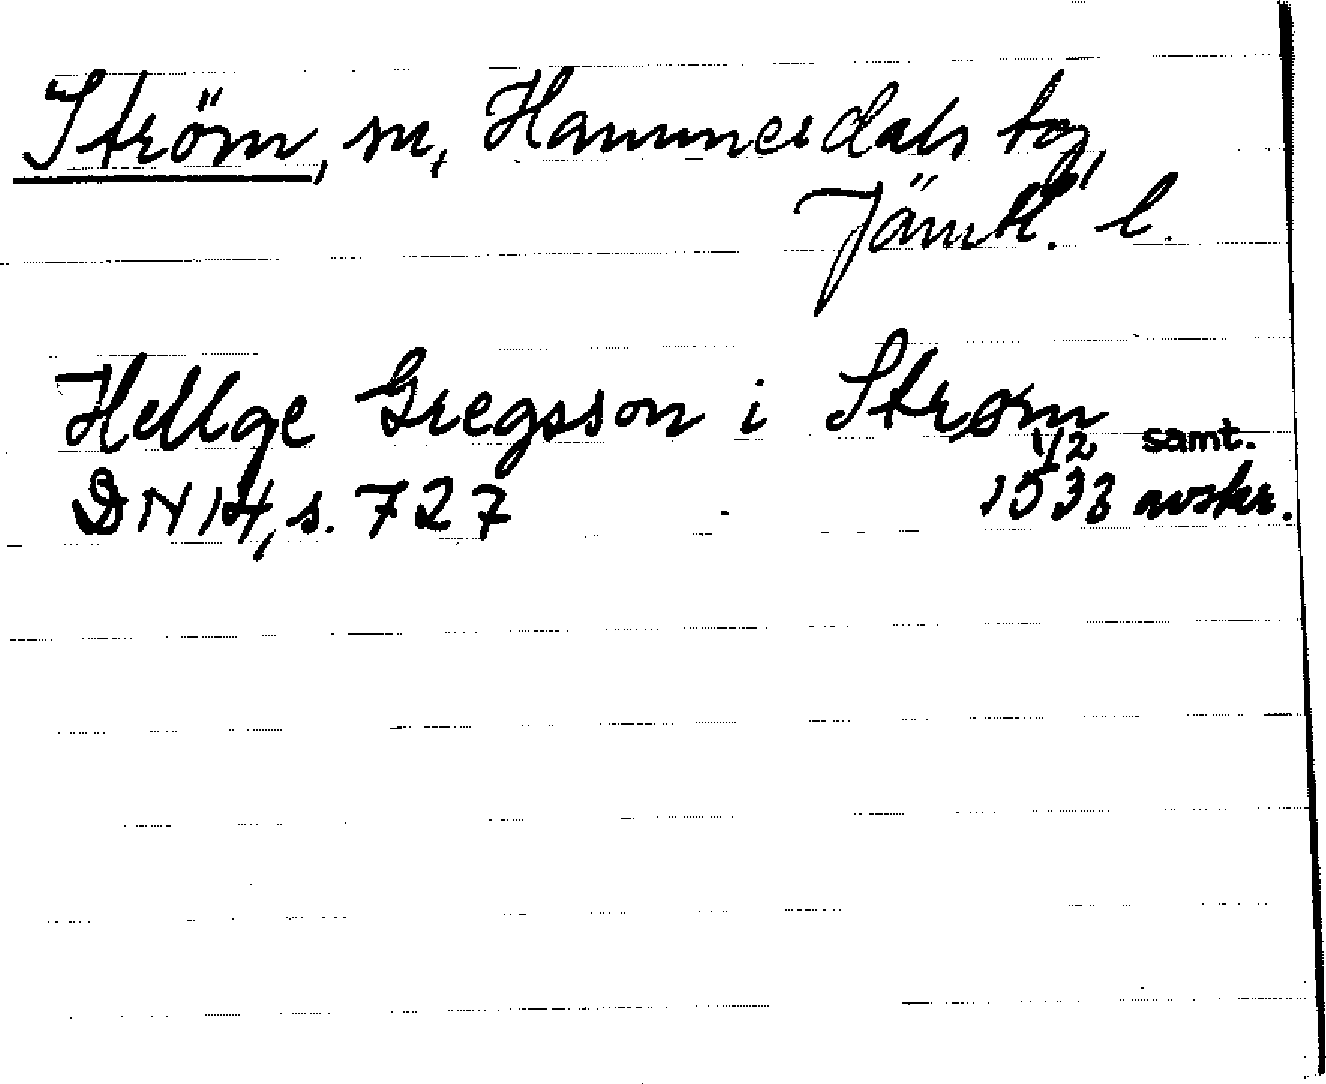 Ström, sn, Hammerdals tg,
Jämtl. l.
Hellge Gregsson i Strøm
1/2 samt.
DN 14, s. 727 1533 avskr.